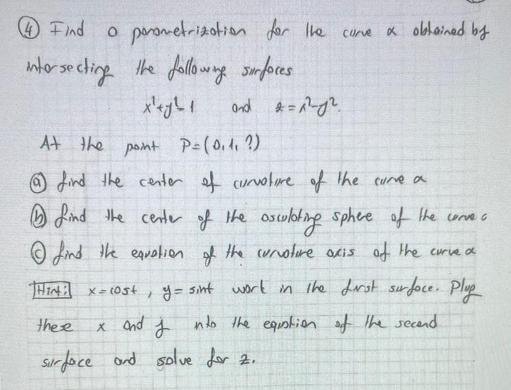 ④ Find a parametrization for the curve α obtained by
intersecting the following surfaces
x²+y²=1 and z=x²-y².
At the point P=(0,1,?)
ⓐ find the center of curvature of the curve α
ⓑ find the center of the osculating sphere of the curve α
ⓒ find the equation of the curvature axis of the curve α
Hint: x=cost, y=sint work in the first surface. Plug
these x and y into the equation of the second
surface and solve for z.